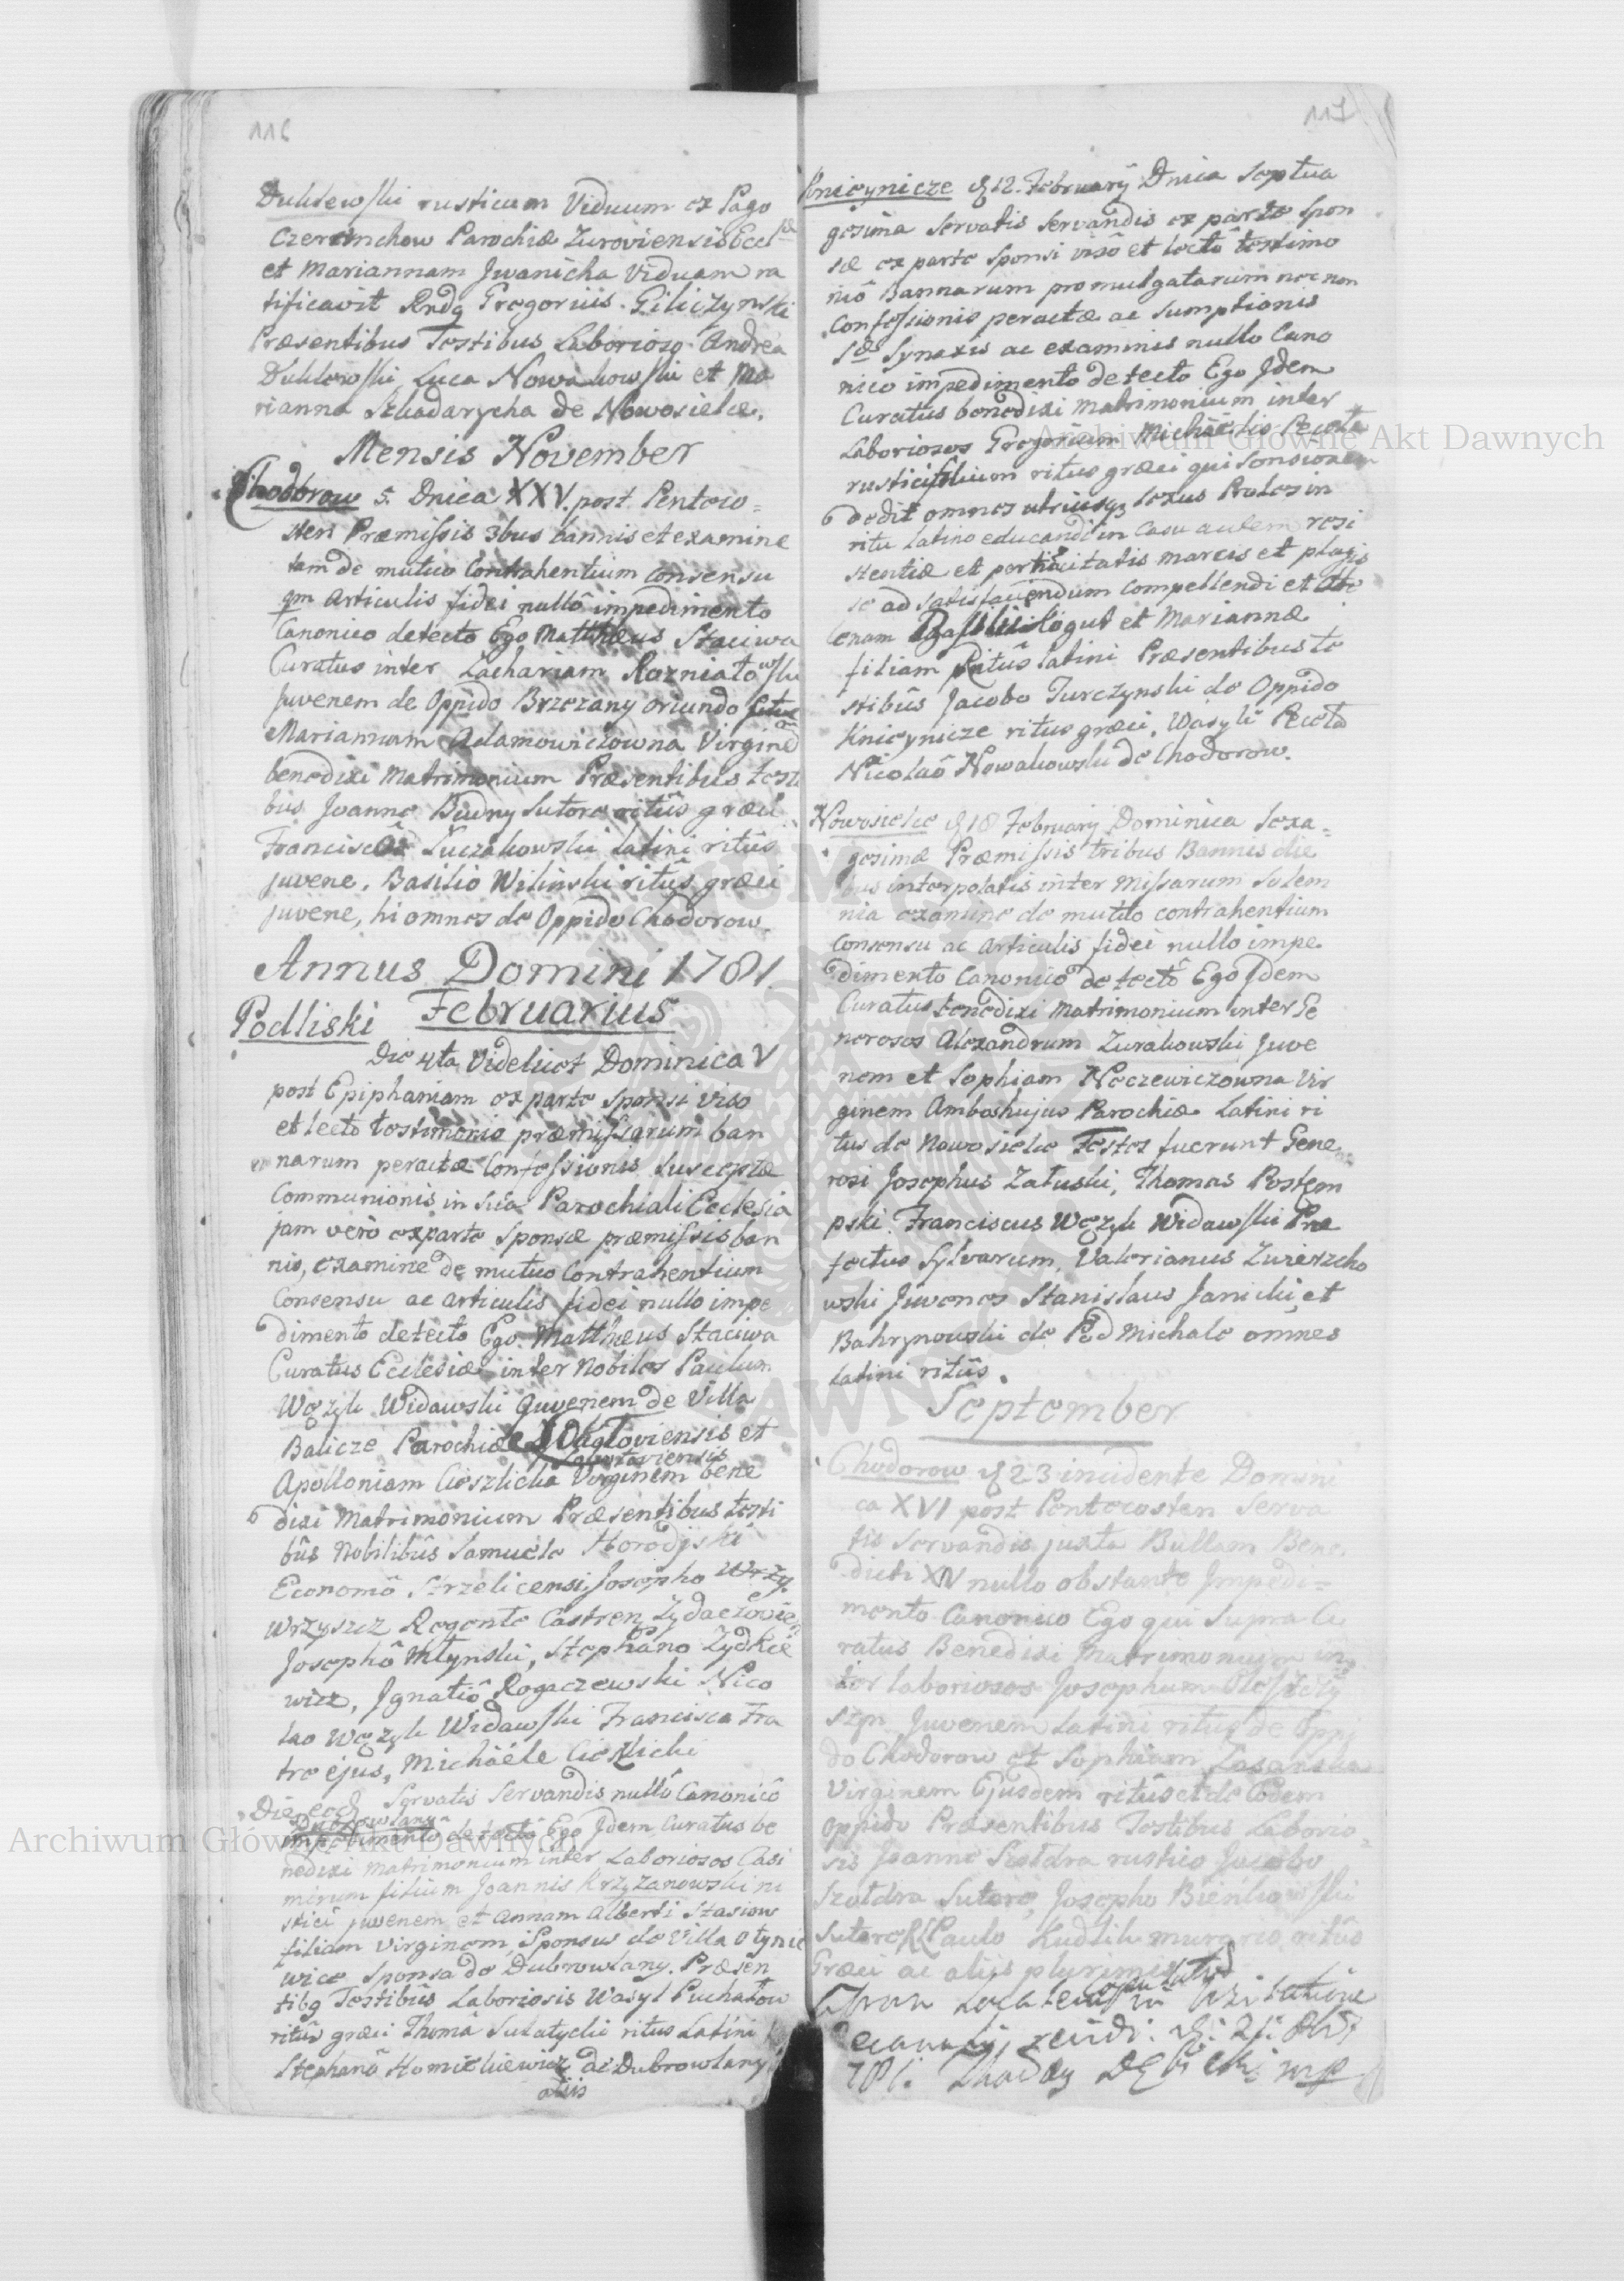 116
Duklewski rusticum Viduum ex Pago
Czeremchow Parochiæ Zuroviensis Eccl
et Mariannam Jwanicha Viduam ra
tificavit Rndg Gregorius Giliczynski
Præsentibus Testibus Laboriosg Andrea
Duklewski Luca Nowakowski et Ma
rianna Szkadarycha de Nowosielce.
Mensis November
Chodorow 5. Dnica XXV. post Pentecos=
sten Præmissis 3bus bannis et examine
tam de mutuo Contrahentium consensu
qm articulis fidei nullô impedimento
Canonico detecto Ego Matthæus Staciwa
Curatus inter Zachariam Rozniatowski
juvenem de Oppido Brzezany oriundo
Mariannam Adamowiczowna Virginem
benedixi Matrimonium Præsentibus testi
bus Joanne Budny Sutore ritûs græci
Francisco Łuczakowski latini ritûs
juvene, Basilio Wilinski ritûs græci
juvene, hi omnes de Oppido Chodorow.
Annus Domini 1781.
Februarius
Podliski
Die 4ta Videlicet Dominica V
post Epiphaniam ex parte sponsi viso
et lecto testimonio præmissarum ban
narum peractæ Confessionis susceptæ
Communionis in sua Parochiali Ecclesia
jam verò ex parte Sponsæ præmissis ban
nis, examine de mutuo Contrahentium
Consensu ac articulis fidei nullo impe
dimento detecto Ego Matthæus Staciwa
Curatus Ecclesiæ inter Nobiles Paulum
Wężyk Widawski Juvenem de Villa
Balicze Parochiæ et
Apolloniam Cieszlicka Virginem bene
dixi Matrimonium Præsentibus testi
bûs Nobilibûs Samuele Horodyski
Economô Strzelicensi, Josepho Wrzy.
Wrzyszcz Regente Castren Zydaczovien
Josephô Młynski, Stephano Zydkie
wicz, Jgnatiô Rogaczewski Nico
lao Wężyk Widawski Francisco Fra
tre ejus, Michaële Cieszlicki
Die eod Servatis Servandis nullô Canonicô
Dubrowlany
impedimentô detectô Ego Jdem Curatus be
nedixi matrimonium inter Laboriosos Casi
mirum filium Joannis Krzyzanowski ru
stici juvenem et Annam Alberti Stasiow
filiam virginem, Sponsus de Villa Otynie
wice Sponsa de Dubrowlany. Præsen
tibg Testibûs Laboriosis Wasyl Puchałow
ritûs græci Thoma Sulatycki ritus Latini
Stephanô Homickiewicz de Dubrowlany
aliis
117
Knieynicze d 12. February Dnica Septua
gesima Servatis servandis ex parte spon
sæ ex parte sponsi visô et lectô testimo
niô Bannarum promulgatarum nec non
Confessionis peractæ ac sumptionis
Sæ Synaxis ac examinis nullo Cano
nico impedimento detecto Ego Jdem
Curatus benedixi Matrimonium inter
Laboriosos Gregorium Michaëlis Pecota
rustici filium ritus græci qui
dedit omnes utriusqz sexus Proles in
ritu latino educandi in casu autem resi
stentiæ et pertinacitatis marcis et plagis
se ad satisfaciendum compellendi et
lenam Basilii et Mariannæ
filiam ritûs latini Præsentibus te
stibûs Jacobo Turczynski de Oppido
Knieynicze ritus græci, Wasyli Pecota
Nicolaô Nowakowski de Chodorow.
Nowosielce d 18 February Dominica Sexa=
gesimæ Præmissis tribus Bannis die
bus interpolatis inter Missarum Solem
nia examine de mutuo contrahentium
Consensu ac articulis fidei nullo impe
dimento Canonico detectô Ego Jdem
Curatus benedixi Matrimonium inter Ge
nerosos Alexandrum Zurakowski Juve
nem et Sophiam Noczewiczowna Vir
ginem Ambos hujus Parochiæ Latini ri
tus de Nowosielce Testes fuerunt Gene
rosi Josephus Załuski, Thomas Postem
pski Franciscus Wężyk Widawski Præ
fectus Sylvarum, Valerianus Zwierzcho
wski Juvenes Stanislaus Janicki, et
Bahrynowski de Pod Michale omnes
Latini ritûs.
September
Chodorow d 23 incidente Domini
ca XVI post Pentecosten Serva
tis Servandis juxta Bullam Bene
dicti XIV nullo obstante Jmpedi=
mento Canonico Ego qui supra Cu
ratus Benedixi Matrimonium in
ter laboriosos Josephum
szyn Juvenem Latini ritus de Oppi
do Chodorow et Sophiam
Virginem Ejusdem ritûs et de Eodem
oppido Præsentibus Testibus Laborio
sis Joanne Szołdra rustico Jacobo
Szołdra Sutore, Josepho Bienkowski
Sutore Paulo Kudlik murario ritûs
Græci ac aliis plurimis
Visitatione
Thadey mp
Archiwum Główne Akt Dawnych
Archiwum Główne Akt Dawnych